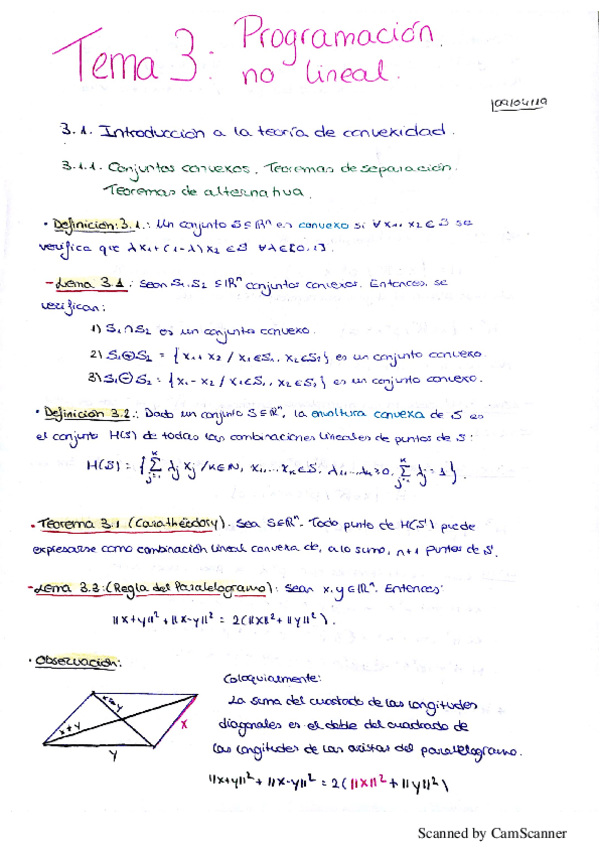 Tema 3: Programación
no lineal.
09/04/19
3.1. Introducción a la teoría de convexidad.
3.1.1. Conjuntos convexos. Teoremas de separación.
Teoremas de alternativa.
• Definición 3.1.: Un conjunto S⊆ℝⁿ es convexo si ∀ x₁, x₂ ∈ S se
verifica que λx₁+(1-λ)x₂ ∈ S ∀λ∈[0,1].
- Lema 3.1: Sean S₁, S₂ ⊆ ℝⁿ conjuntos convexos. Entonces, se
verifican:
1) S₁∩S₂ es un conjunto convexo.
2) S₁⊕S₂ = {x₁+x₂ / x₁∈S₁, x₂∈S₂} es un conjunto convexo.
3) S₁⊖S₂ = {x₁-x₂ / x₁∈S₁, x₂∈S₂} es un conjunto convexo.
• Definición 3.2.: Dado un conjunto S⊆ℝⁿ, la envoltura convexa de S es
el conjunto H(S) de todas las combinaciones lineales de puntos de S:
H(S) = { ∑ⱼ₌₁ᵏ λⱼ xⱼ / k∈ℕ, x₁,... xₖ∈S, λ₁,...λₖ≥0, ∑ⱼ₌₁ᵏ λⱼ = 1 }.
• Teorema 3.1 (Caratheódory). Sea S⊆ℝⁿ. Todo punto de H(S) puede
expresarse como combinación lineal convexa de, a lo sumo, n+1 puntos de S.
- Lema 3.3: (Regla del Paralelogramo): Sean x,y∈ℝⁿ. Entonces:
||x+y||² + ||x-y||² = 2(||x||² + ||y||²).
• Observación:
Coloquialmente:
La suma del cuadrado de las longitudes
diagonales es el doble del cuadrado de
las longitudes de las aristas del paralelogramo.
x-y
x+y
x
y
||x+y||² + ||x-y||² = 2(||x||² + ||y||²)
Scanned by CamScanner